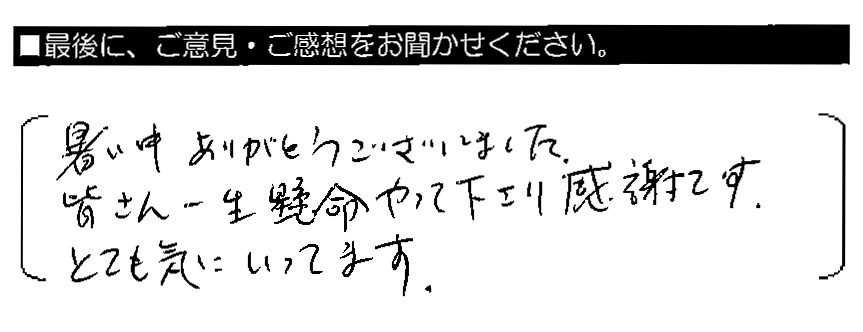 ■最後に、ご意見・ご感想をお聞かせください。
暑い中ありがとうございました。
皆さん一生懸命やって下さり感謝です。
とても気にいってます。